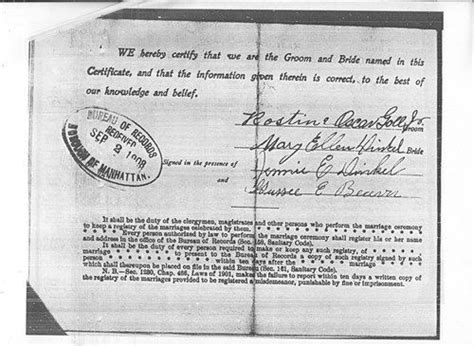 WE hereby certify that we are the Groom and Bride named in this
Certificate, and that the information given therein is correct, to the best of
our knowledge and belief.
Oscar Jr. Groom
Mary Ellen Dinkel Bride
Signed in the presence of Jennie E Dinkel
and E
BUREAU OF RECORDS
RECEIVED
SEP 2 1908
BOROUGH OF MANHATTAN.
It shall be the duty of the clergymen, magistrates and other persons who perform the marriage ceremony
to keep a registry of the marriages celebrated by them.
Every person authorized by law to perform the marriage ceremony shall register his or her name
and address in the office of the Bureau of Records (Sec. 159, Sanitary Code).
It shall be the duty of every person required to make or keep any such registry, of
marriage to present to the Bureau of Records a copy of such registry signed by such
person within ten days after the marriage
which shall thereupon be placed on file in the said Bureau (Sec. 161, Sanitary Code).
N. B.—Sec. 1220, Chap. 466, Laws of 1901, makes the failure to report within ten days a written copy of
the registry of the marriages provided to be registered a misdemeanor, punishable by fine or imprisonment.